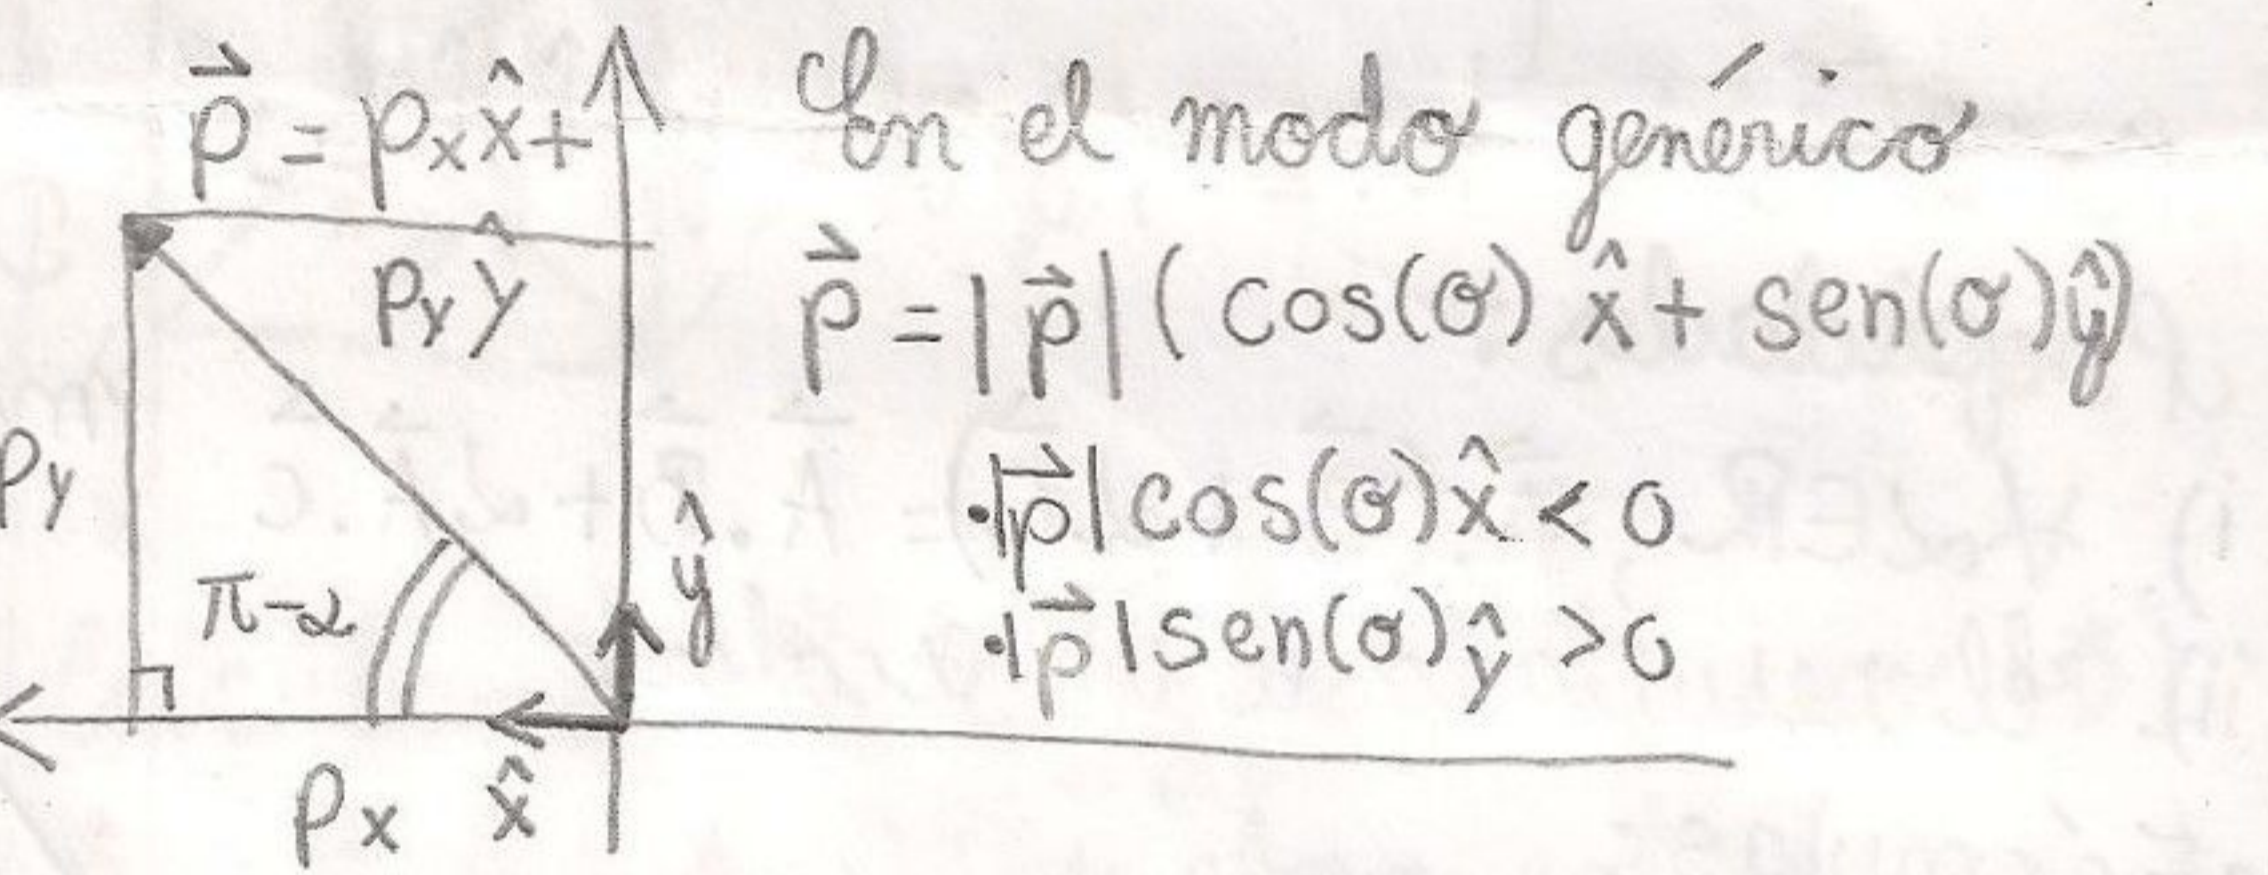 p⃗ = pₓx̂ +
pᵧŷ
Py
π-α
Px x̂
ŷ
En el modo genérico
p⃗ = |p⃗| ( cos(σ) x̂ + sen(σ)ŷ)
·|p⃗| cos(σ)x̂ < 0
·|p⃗| sen(σ)ŷ > 0